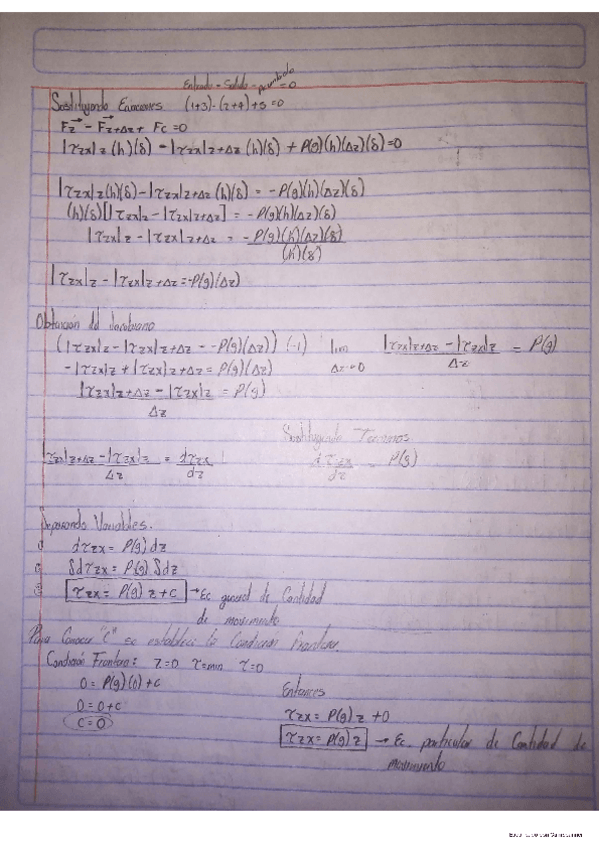 Entrada - Salida - Acumbala = 0
Sustituyendo Ecuaciones. (1+3)-(2+4)+5=0
Fz - Fz+Δz + Fc =0
|τzx|z (h)(δ) - |τzx|z+Δz (h)(δ) + P(g)(h)(Δz)(δ)=0
|τzx|z(h)(δ) - |τzx|z+Δz (h)(δ) = -P(g)(h)(Δz)(δ)
(h)(δ)[|τzx|z - |τzx|z+Δz] = -P(g)(h)(Δz)(δ)
|τzx|z - |τzx|z+Δz = -P(g)(h)(Δz)(δ)
(h)(δ)
|τzx|z - |τzx|z+Δz = -P(g)(Δz)
Obtención del Jacobiano
(|τzx|z - |τzx|z+Δz = -P(g)(Δz)) (-1) lim |τzx|z+Δz - |τzx|z = P(g)
-|τzx|z + |τzx|z+Δz = P(g)(Δz) Δz→0 Δz
|τzx|z+Δz - |τzx|z = P(g)
Δz
Sustituyendo Terminos
|τzx|z+Δz - |τzx|z = dτzx dτzx = P(g)
Δz dz dz
Separando Variables.
dτzx = P(g) dz
∫dτzx = P(g) ∫dz
τzx = P(g) z + c → Ec general de Cantidad
de movimiento
Para Conocer "C" se establece la Condición frontera.
Condición Frontera: z=0 τ=min τ=0
0 = P(g)(0)+c Entonces
0 = 0+c τzx = P(g) z +0
C=0 τzx = P(g) z → Ec. particular de Cantidad de
movimiento